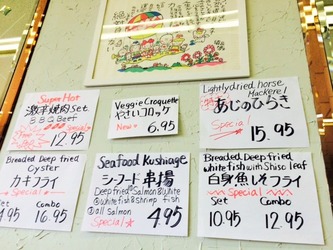 Super Hot
激辛焼肉 Set
B.B.Q Beef
Special
12.95
Veggie Croquette
やさいコロッケ
New♥ 6.95
Lightly dried horse
Mackerel
あじのひらき
Special 15.95
Breaded Deep fried
Oyster
カキフライ
Special
Combo
4.95 16.95
Seafood Kushiage
シーフード串揚
Deep fried ①Salmon&White
②white fish&shrimp fish
③all salmon
Special 4.95
Breaded, Deep fried
white fish with Shiso leaf
白身魚しそフライ
Special
Set Combo
10.95 12.95